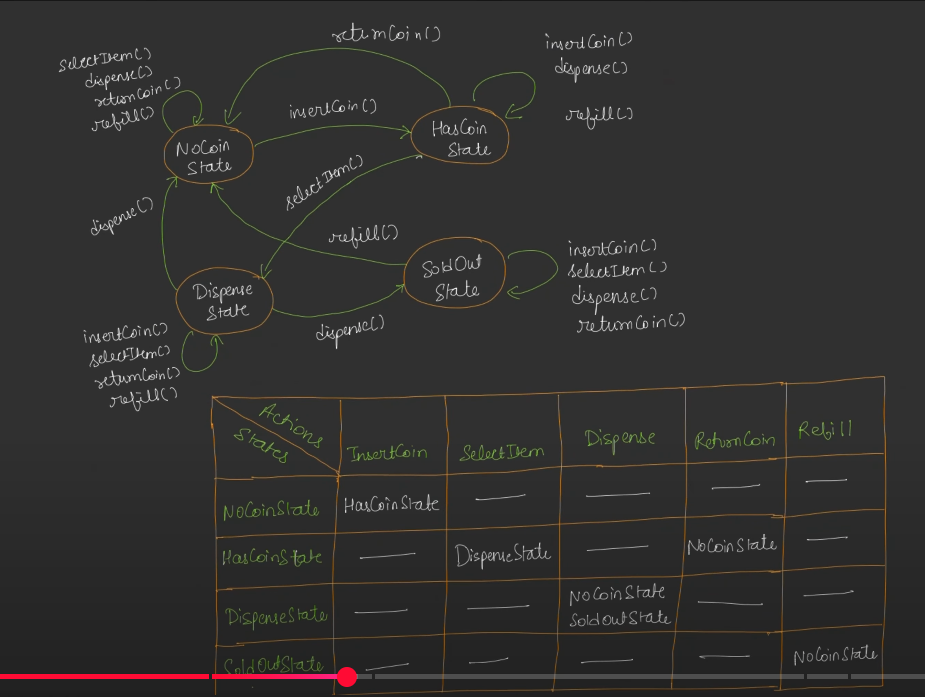 returnCoin()
selectItem()
dispense()
returnCoin()
refill()
insertCoin()
dispense()
refill()
insertCoin()
NoCoin
State
HasCoin
State
selectItem()
dispense()
refill()
SoldOut
State
insertCoin()
selectItem()
dispense()
returnCoin()
Dispense
State
dispense()
insertCoin()
selectItem()
returnCoin()
refill()
Actions
States
InsertCoin
SelectItem
Dispense
ReturnCoin
Refill
NoCoinState
HasCoinState
—
—
—
—
HasCoinState
—
DispenseState
—
NoCoinState
—
DispenseState
—
—
NoCoinState
SoldoutState
—
—
SoldOutState
—
—
—
—
NoCoinState